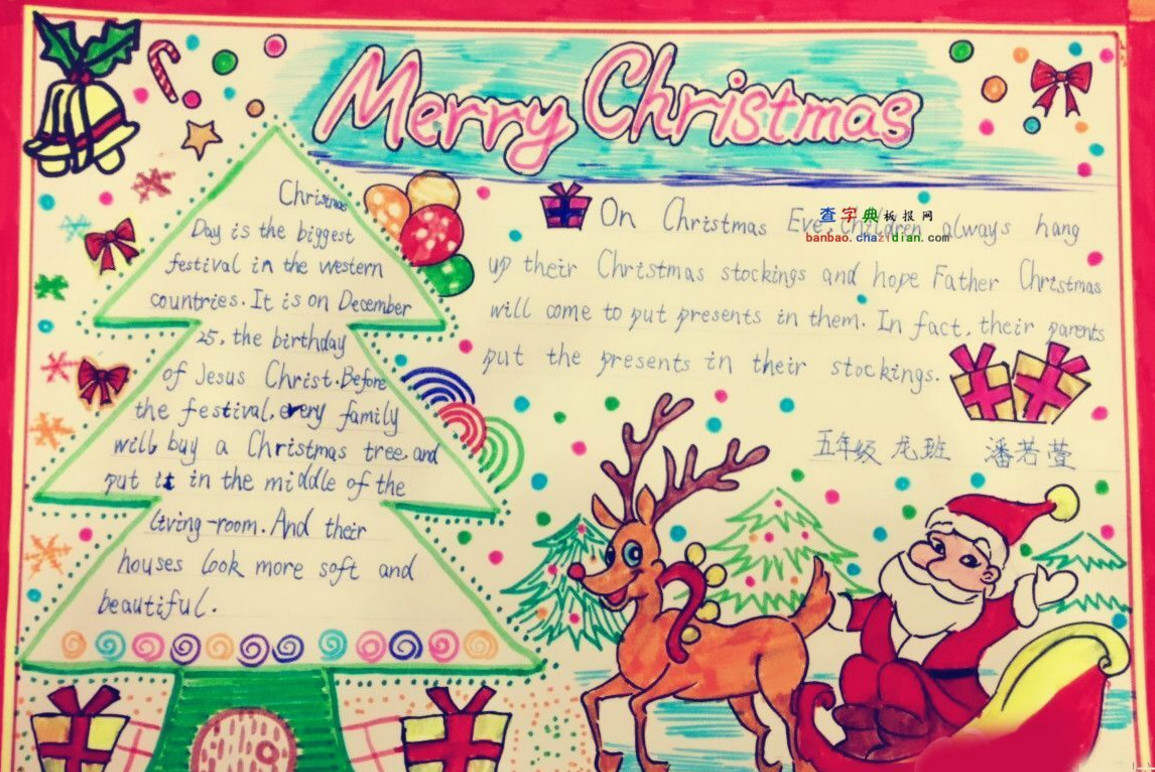 Merry Christmas
Christmas
Day is the biggest
festival in the western
countries. It is on December
25, the birthday
of Jesus Christ. Before
the festival, every family
will buy a Christmas tree and
put it in the middle of the
living-room. And their
houses look more soft and
beautiful.
On Christmas Eve, children always hang
up their Christmas stockings and hope Father Christmas
will come to put presents in them. In fact, their parents
put the presents in their stockings.
查字典板报网
banbao.chazidian.com
五年级 龙班 潘若萱